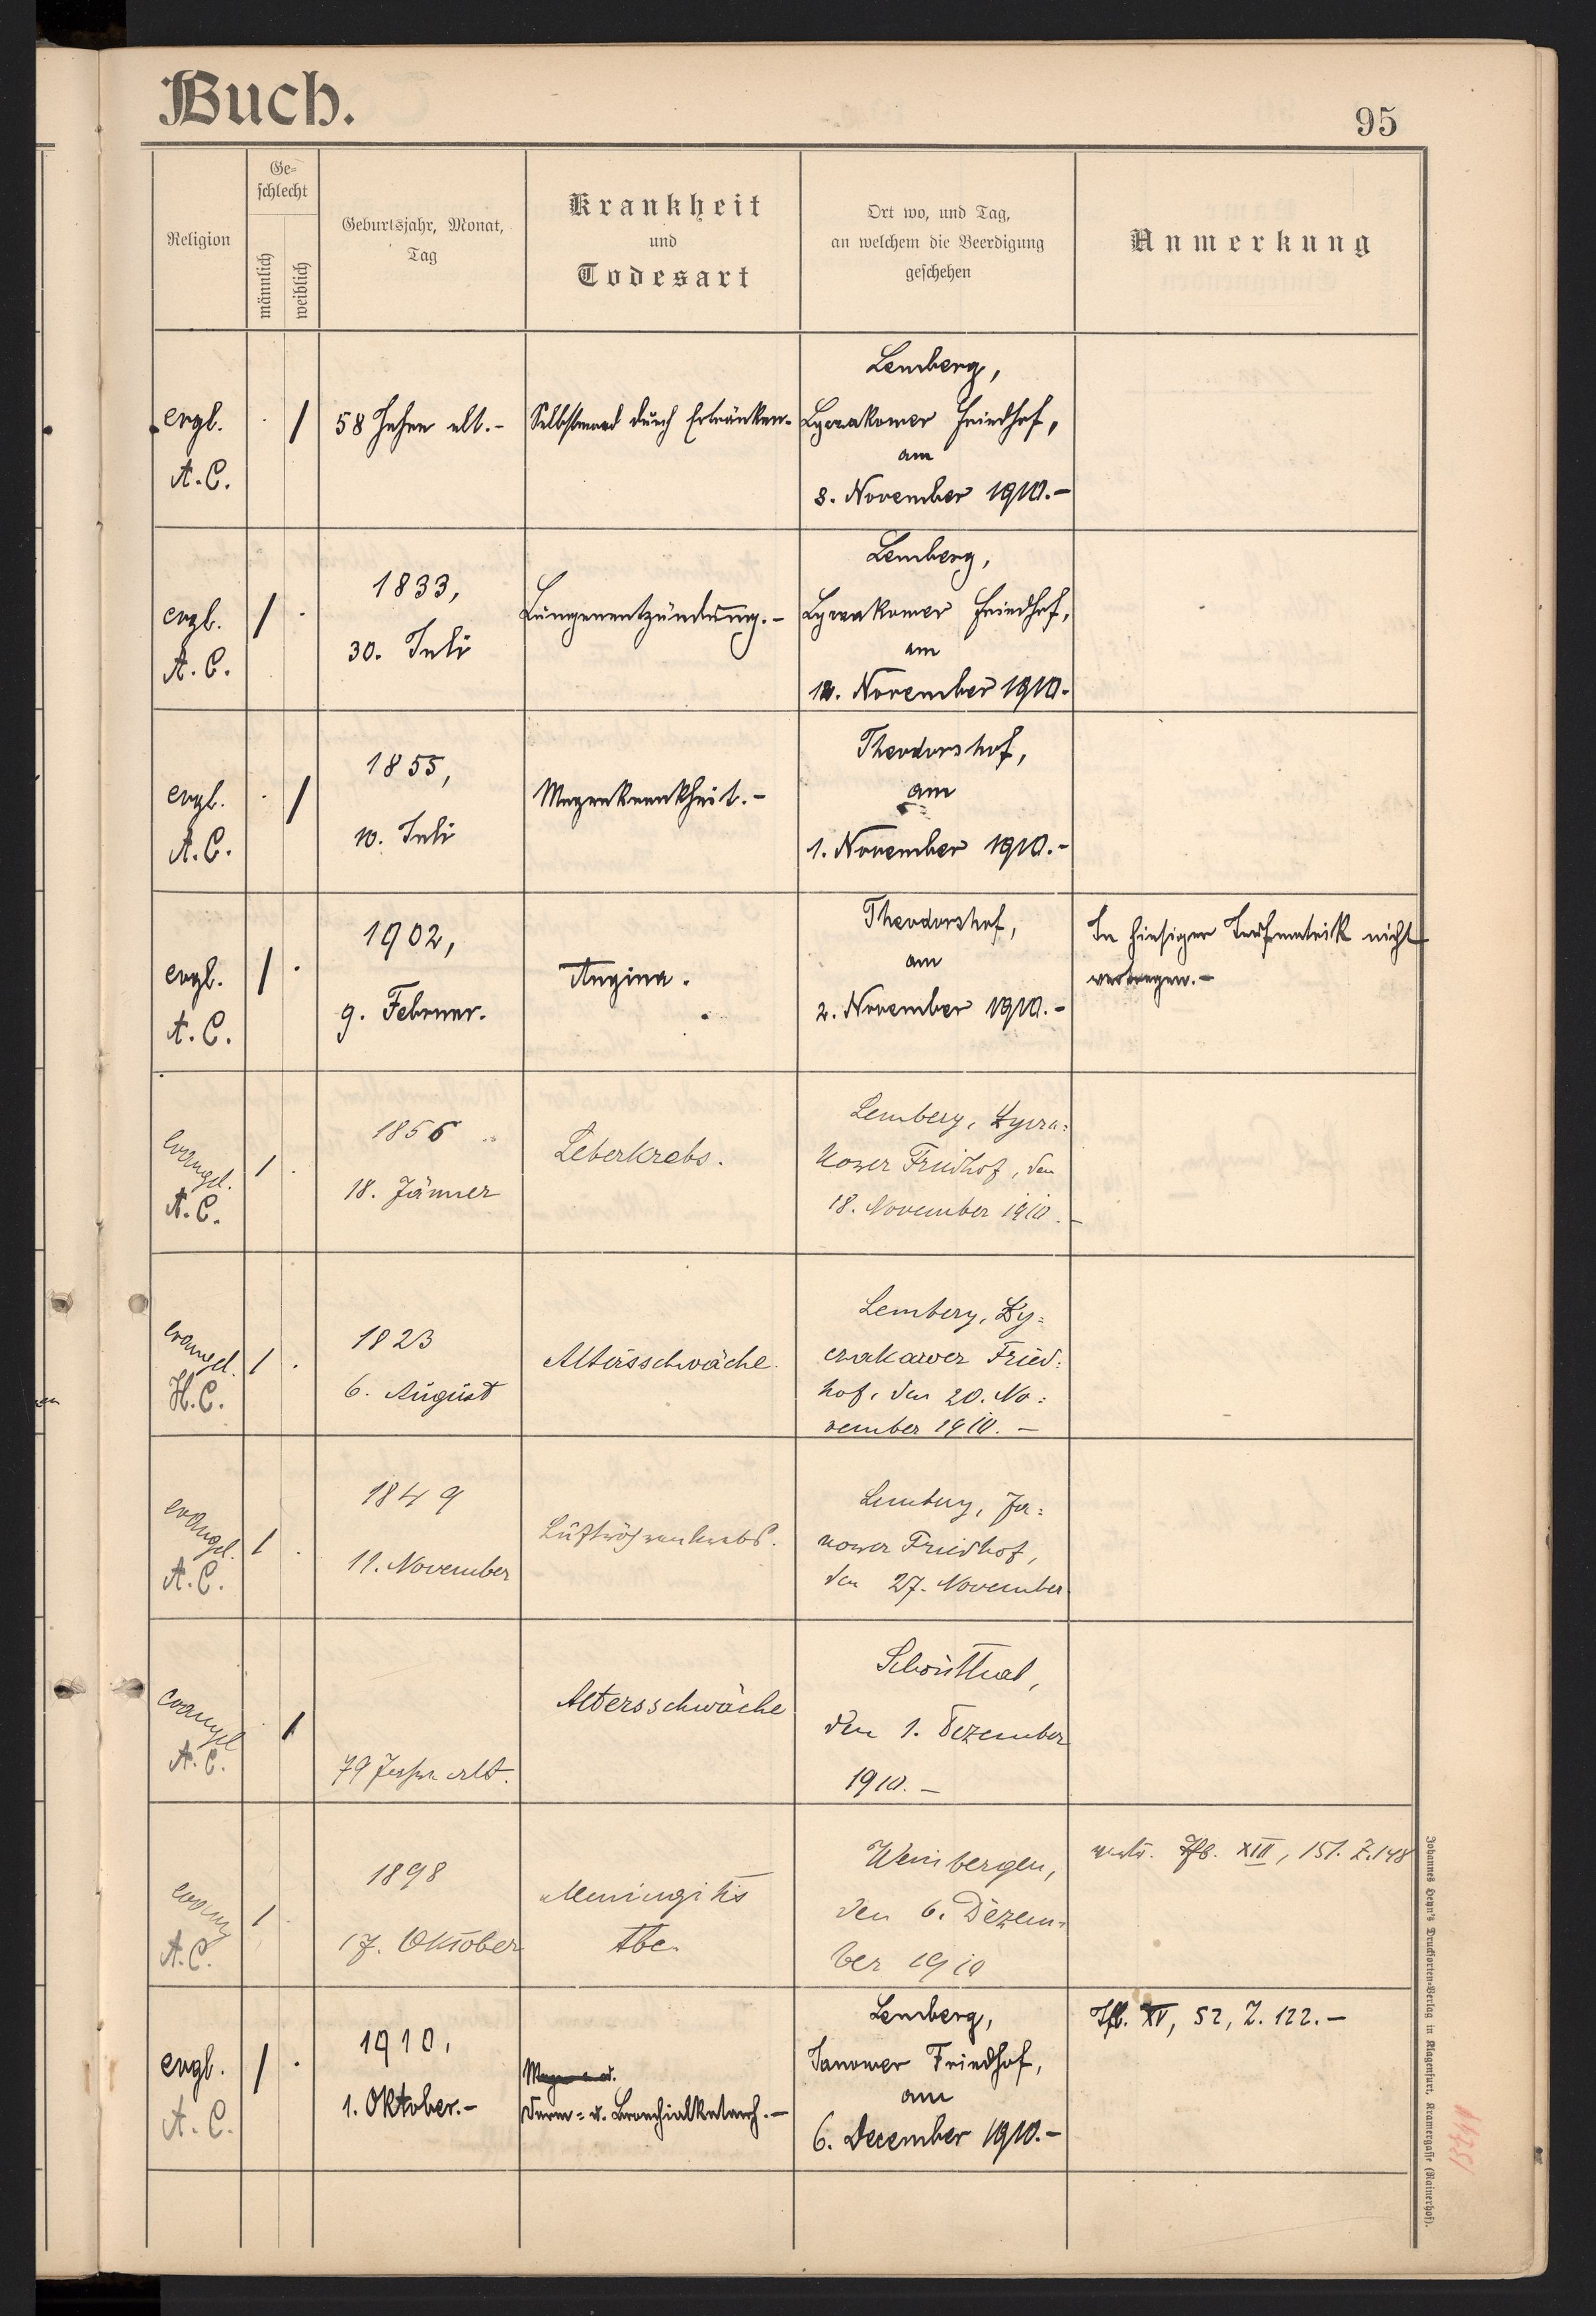 Buch.
95
Religion
Ge-
schlecht
männlich
weiblich
Geburtsjahr, Monat,
Tag
Krankheit
und
Todesart
Ort wo, und Tag,
an welchem die Beerdigung
geschehen
Anmerkung
evgl.
A. C.
1
58 Jahre alt.-
Selbstmord durch Ertränken.
Lemberg,
Lyczakower Friedhof,
am
8. November 1910.-
evgl.
A. C.
1
1833,
30. Juli
Lungenentzündung.-
Lemberg,
Lyczakower Friedhof,
am
November 1910.
evgl.
A. C.
1
1855,
10. Juli
Magenkrankheit.-
Theodorshof,
am
1. November 1910.-
evgl.
A. C.
1
1902,
9. Februar.
Angina.
Theodorshof,
am
2. November 1910.-
In hiesiger Taufmatrik nicht
vertragen.-
evangel.
A. C.
1
1856
18. Jänner
Leberkrebs.
Lemberg, Lycza=
kower Friedhof, den
18. November 1910.-
evangel.
H. C.
1
1823
6. August
Altersschwäche.
Lemberg, Ly=
czakower Fried=
hof, den 20. No=
vember 1910. -
evangel.
A. C.
1
1849
11. November
Luftröhrenkrebs.
Lemberg, Ja=
nower Friedhof,
den 27. November
evangel
A. C.
1
79 Jahre alt.
Altersschwäche
Schönthal,
den 1. Dezember
1910.-
evang
A. C.
1
1898
17. Oktober
Meningitis
tbc.
Weinbergen,
den 6. Dezem=
ber 1910
Tfb. XIII, 151. Z. 148
evgl.
A. C.
1
1910,
1. Oktober.-
Darm= u. Bronchialkatarrh.-
Lemberg,
Janower Friedhof,
am
6. December 1910.-
Tfb. XV, 52, Z. 122.-
Johannes Heyn's Drucksorten-Verlag in Klagenfurt, Kramergasse (Rainerhof).